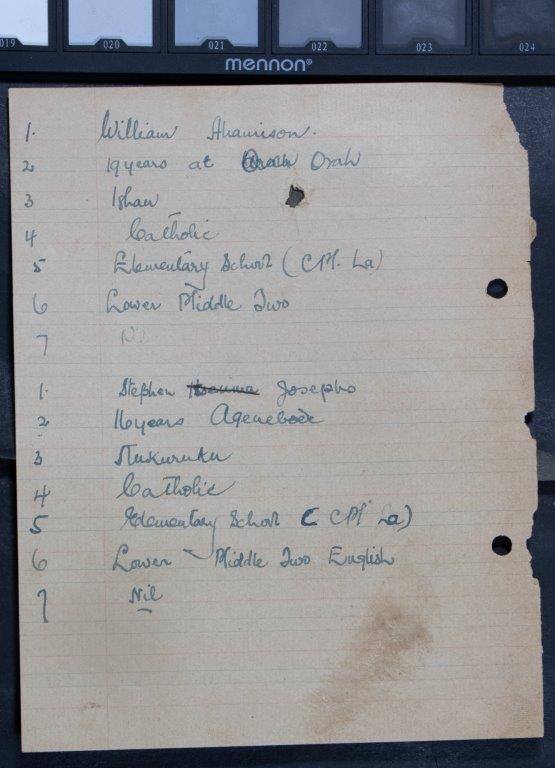 019 020 021 022 023 024
mennon®
1. William Ahamison.
2 19 years at Orah
3 Ishan
4 Catholic
5 Elementary School (CM. La)
6 Lower Middle Two
7 Nil
1. Stephen Josepho
2 16 years Agenebode
3 Kukuruku
4 Catholic
5 Elementary School (CM. La)
6 Lower Middle Two English
7 Nil